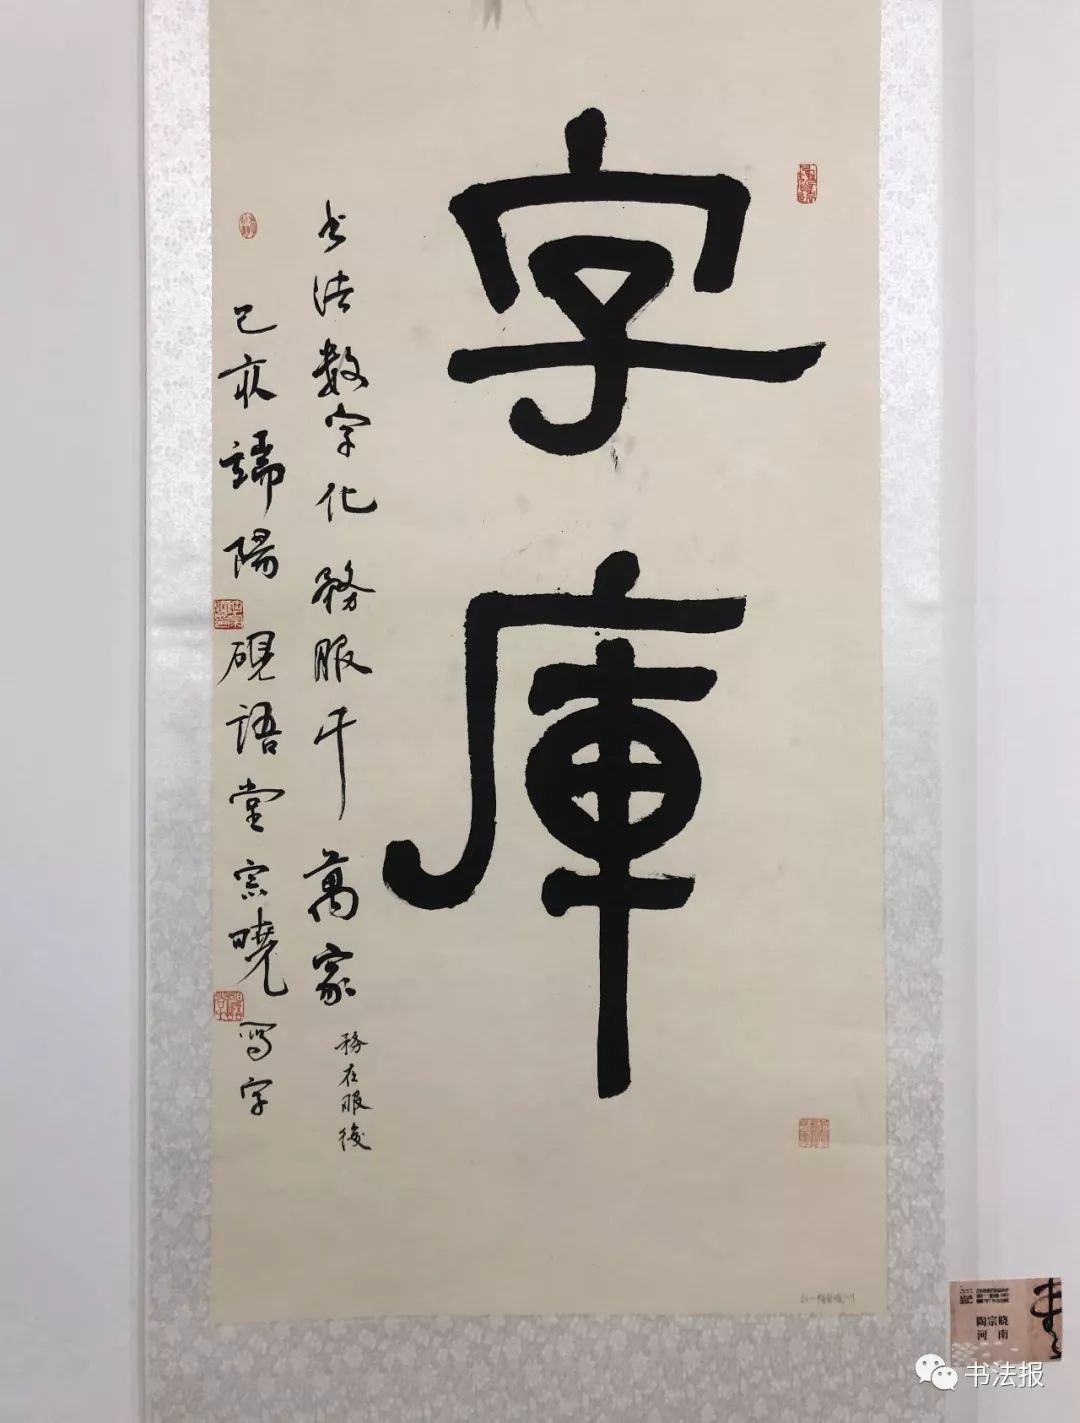 字庫
书法数字化務服千萬家
務在服後
己亥端陽硯語堂宗曉写字
陶宗晓
河南
书法报